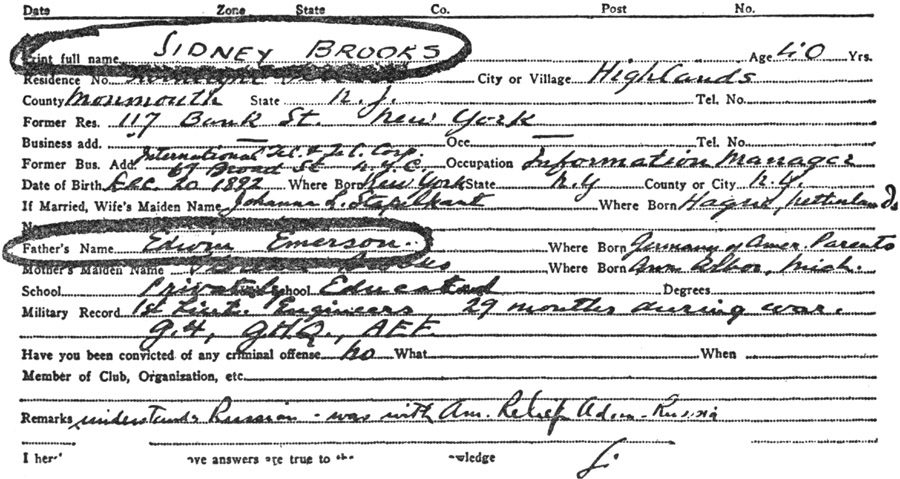 Date Zone State Co. Post No.
Print full name SIDNEY BROOKS Age 40 Yrs.
Residence No. City or Village Highlands
County Monmouth State N.J. Tel. No.
Former Res. 117 Bank St. New York
Business add. — Occ — Tel. No.
Former Bus. Add International Tel. & Tel. Corp. 67 Broad St N.Y.C. Occupation Information Manager
Date of Birth Dec. 20 1892 Where Born New York State N.Y County or City N.Y.
If Married, Wife's Maiden Name Johanna L. Where Born
Father's Name Edwin Emerson. Where Born Germany of Amer. Parents
Mother's Maiden Name Where Born Ann Arbor, Mich.
School Privately School Educated Degrees
Military Record 1st Lieut. Engineers 29 months during war.
G.4, G.H.Q., AEF
Have you been convicted of any criminal offense no What When
Member of Club, Organization, etc.
Remarks understands Russian - was with Am. Relief Admn - Russia
I ve answers are true to the wledge